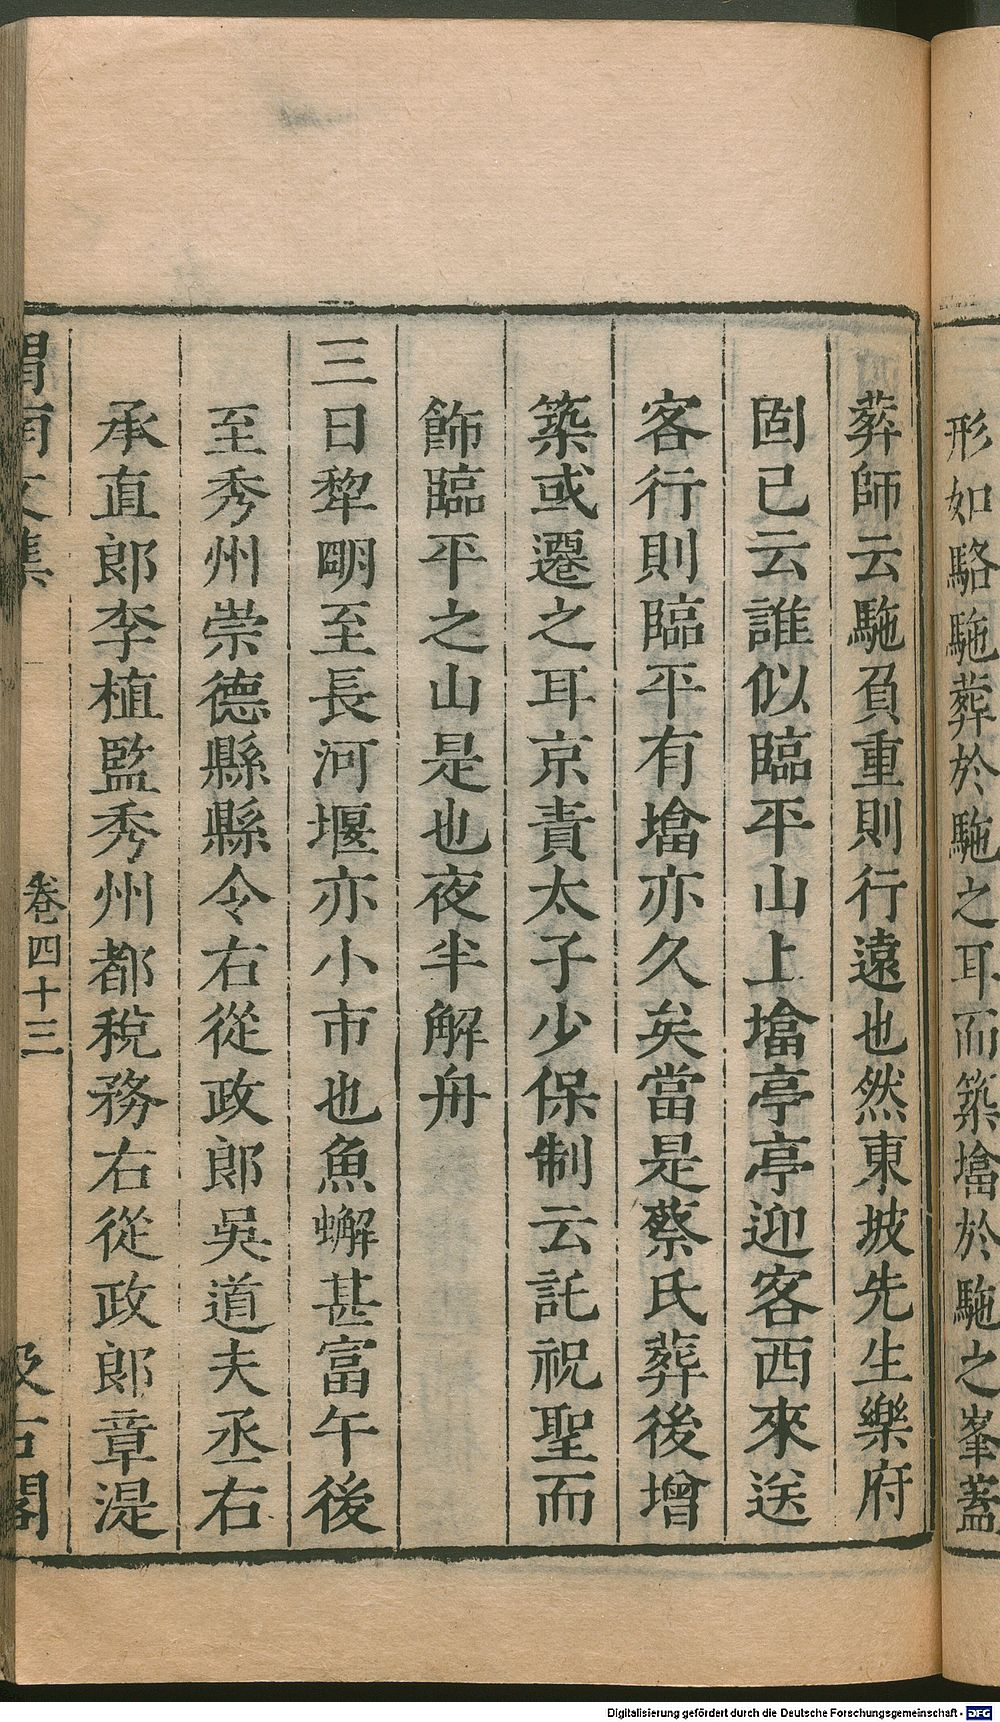 形如駱駞葬於駞之耳而築墖於駞之峯蓋
葬師云駞負重則行遠也然東坡先生樂府
固已云誰似臨平山上墖亭亭迎客西來送
客行則臨平有墖亦久矣當是蔡氏葬後增
築或遷之耳京責太子少保制云託祝聖而
飾臨平之山是也夜半解舟
三日犂明至長河堰亦小市也魚蠏甚富午後
至秀州崇德縣縣令右從政郎吳道夫丞右
承直郎李植監秀州都稅務右從政郎章湜
渭南文集 卷四十三 汲古閣
Digitalisierung gefördert durch die Deutsche Forschungsgemeinschaft - DFG